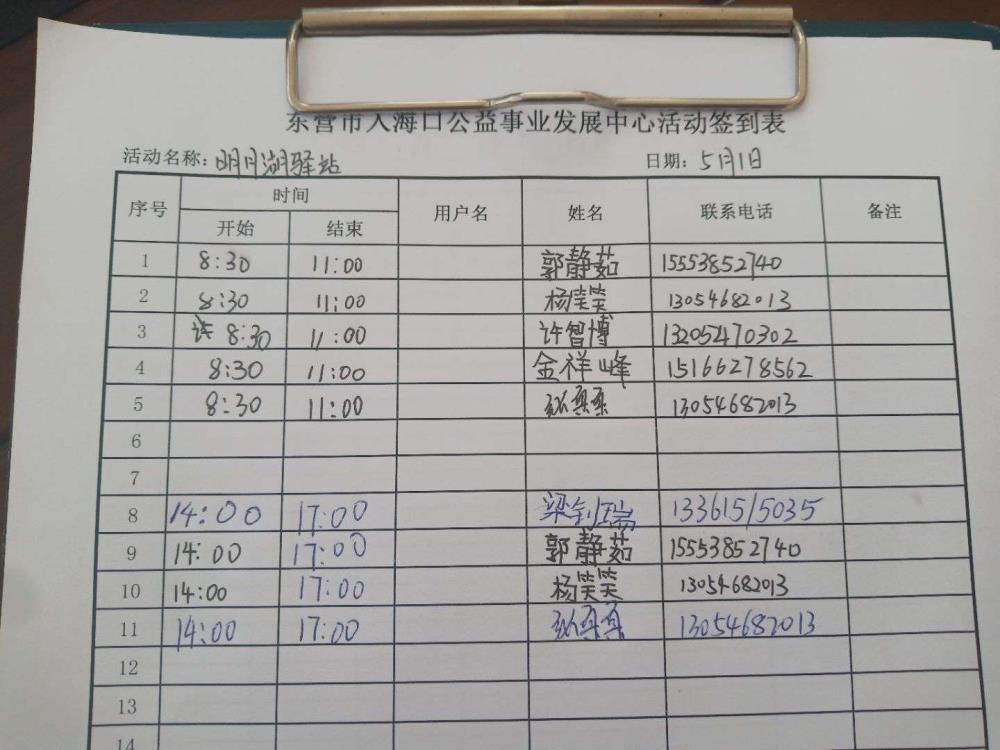 东营市入海口公益事业发展中心活动签到表
活动名称：明月湖驿站 日期：5月1日
序号 时间 用户名 姓名 联系电话 备注
开始 结束
1 8:30 11:00 郭静茹 15553852740
2 8:30 11:00 杨笑笑 13054682013
3 许 8:30 11:00 许智博 13205470302
4 8:30 11:00 金祥峰 15166278562
5 8:30 11:00 13054682013
6
7
8 14:00 17:00 梁钊瑞 13361515035
9 14:00 17:00 郭静茹 15553852740
10 14:00 17:00 杨笑笑 13054682013
11 14:00 17:00 13054682013
12
13
14